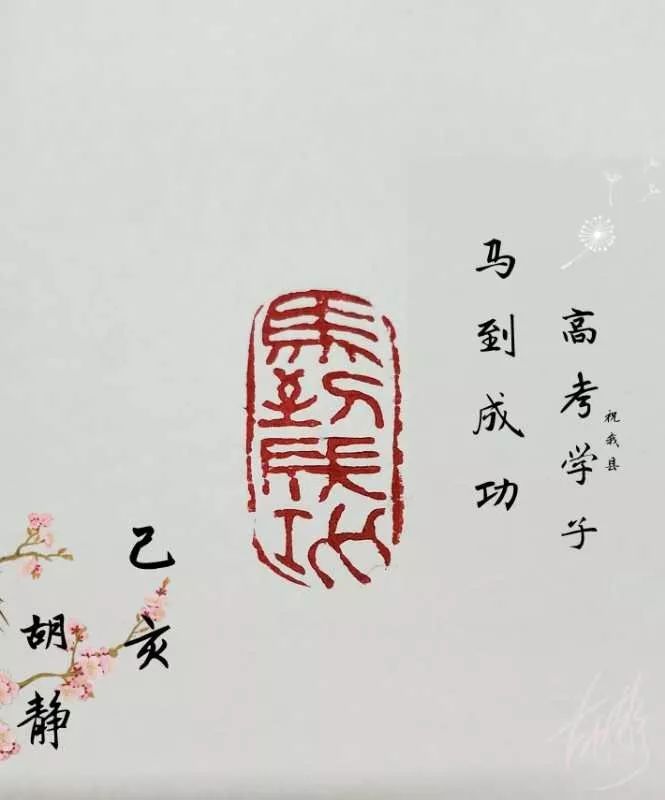 祝我县
高考学子
马到成功
馬到成功
己亥
胡静